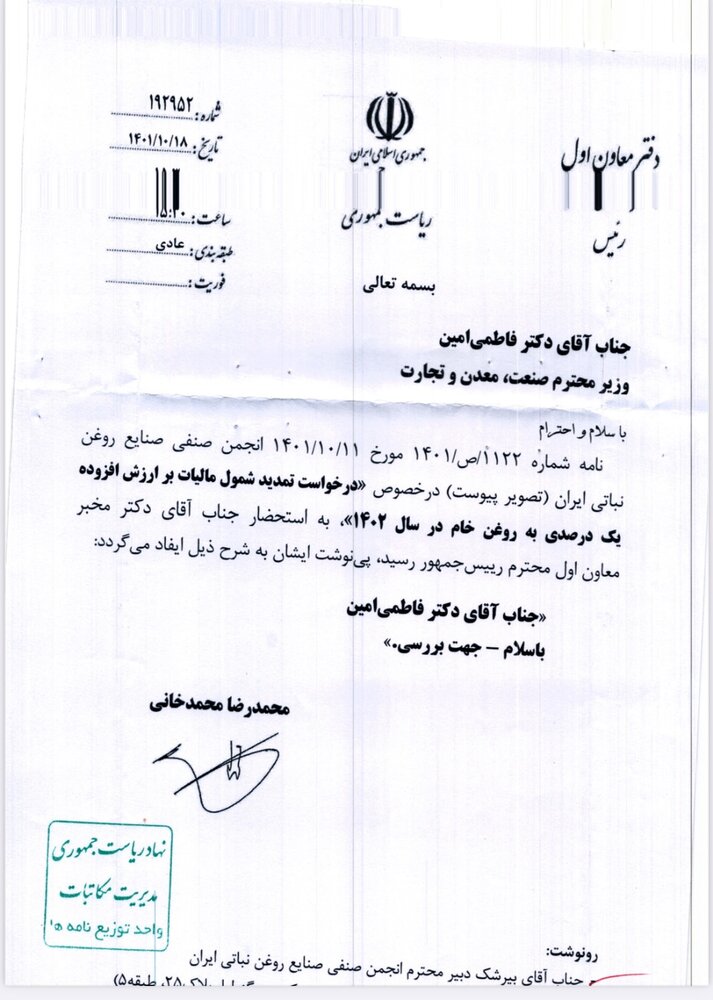 دفتر معاون اول
رئیس
جمهوری اسلامی ایران
ریاست جمهوری
شماره: ۱۹۲۹۵۲
تاریخ: ۱۴۰۱/۱۰/۱۸
ساعت: ۱۵:۲۰
طبقه‌بندی: عادی
فوریت:
بسمه تعالی
جناب آقای دکتر فاطمی‌امین
وزیر محترم صنعت، معدن و تجارت
با سلام و احترام
نامه شماره ۱۱۲۲/ص/۱۴۰۱ مورخ ۱۴۰۱/۱۰/۱۱ انجمن صنفی صنایع روغن
نباتی ایران (تصویر پیوست) درخصوص «درخواست تمدید شمول مالیات بر ارزش افزوده
یک درصدی به روغن خام در سال ۱۴۰۲»، به استحضار جناب آقای دکتر مخبر
معاون اول محترم رییس‌جمهور رسید، پی‌نوشت ایشان به شرح ذیل ایفاد می‌گردد:
«جناب آقای دکتر فاطمی‌امین
باسلام – جهت بررسی.»
محمدرضا محمدخانی
نهاد ریاست جمهوری
مدیریت مکاتبات
واحد توزیع نامه ها
رونوشت:
- جناب آقای بیرشک دبیر محترم انجمن صنفی صنایع روغن نباتی ایران
پلاک۲۵، طبقه۵)